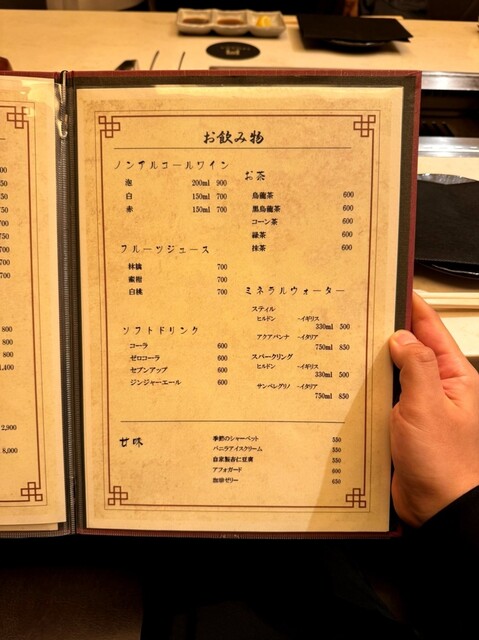 00
50
50
50
700
750
700
750
700
700
800
800
1,400
2,900
8,000
お飲み物
ノンアルコールワイン
泡 200ml 900
白 150ml 700
赤 150ml 700
フルーツジュース
林檎 700
蜜柑 700
白桃 700
ソフトドリンク
コーラ 600
ゼロコーラ 600
セブンアップ 600
ジンジャーエール 600
お茶
烏龍茶 600
黒烏龍茶 600
コーン茶 600
緑茶 600
抹茶 600
ミネラルウォーター
スティル
ヒルドン -イギリス
330ml 500
アクアパンナ -イタリア
750ml 850
スパークリング
ヒルドン -イギリス
330ml 500
サンペレグリノ -イタリア
750ml 850
甘味
季節のシャーベット 350
バニラアイスクリーム 350
自家製杏仁豆腐 550
アフォガード 600
珈琲ゼリー 650